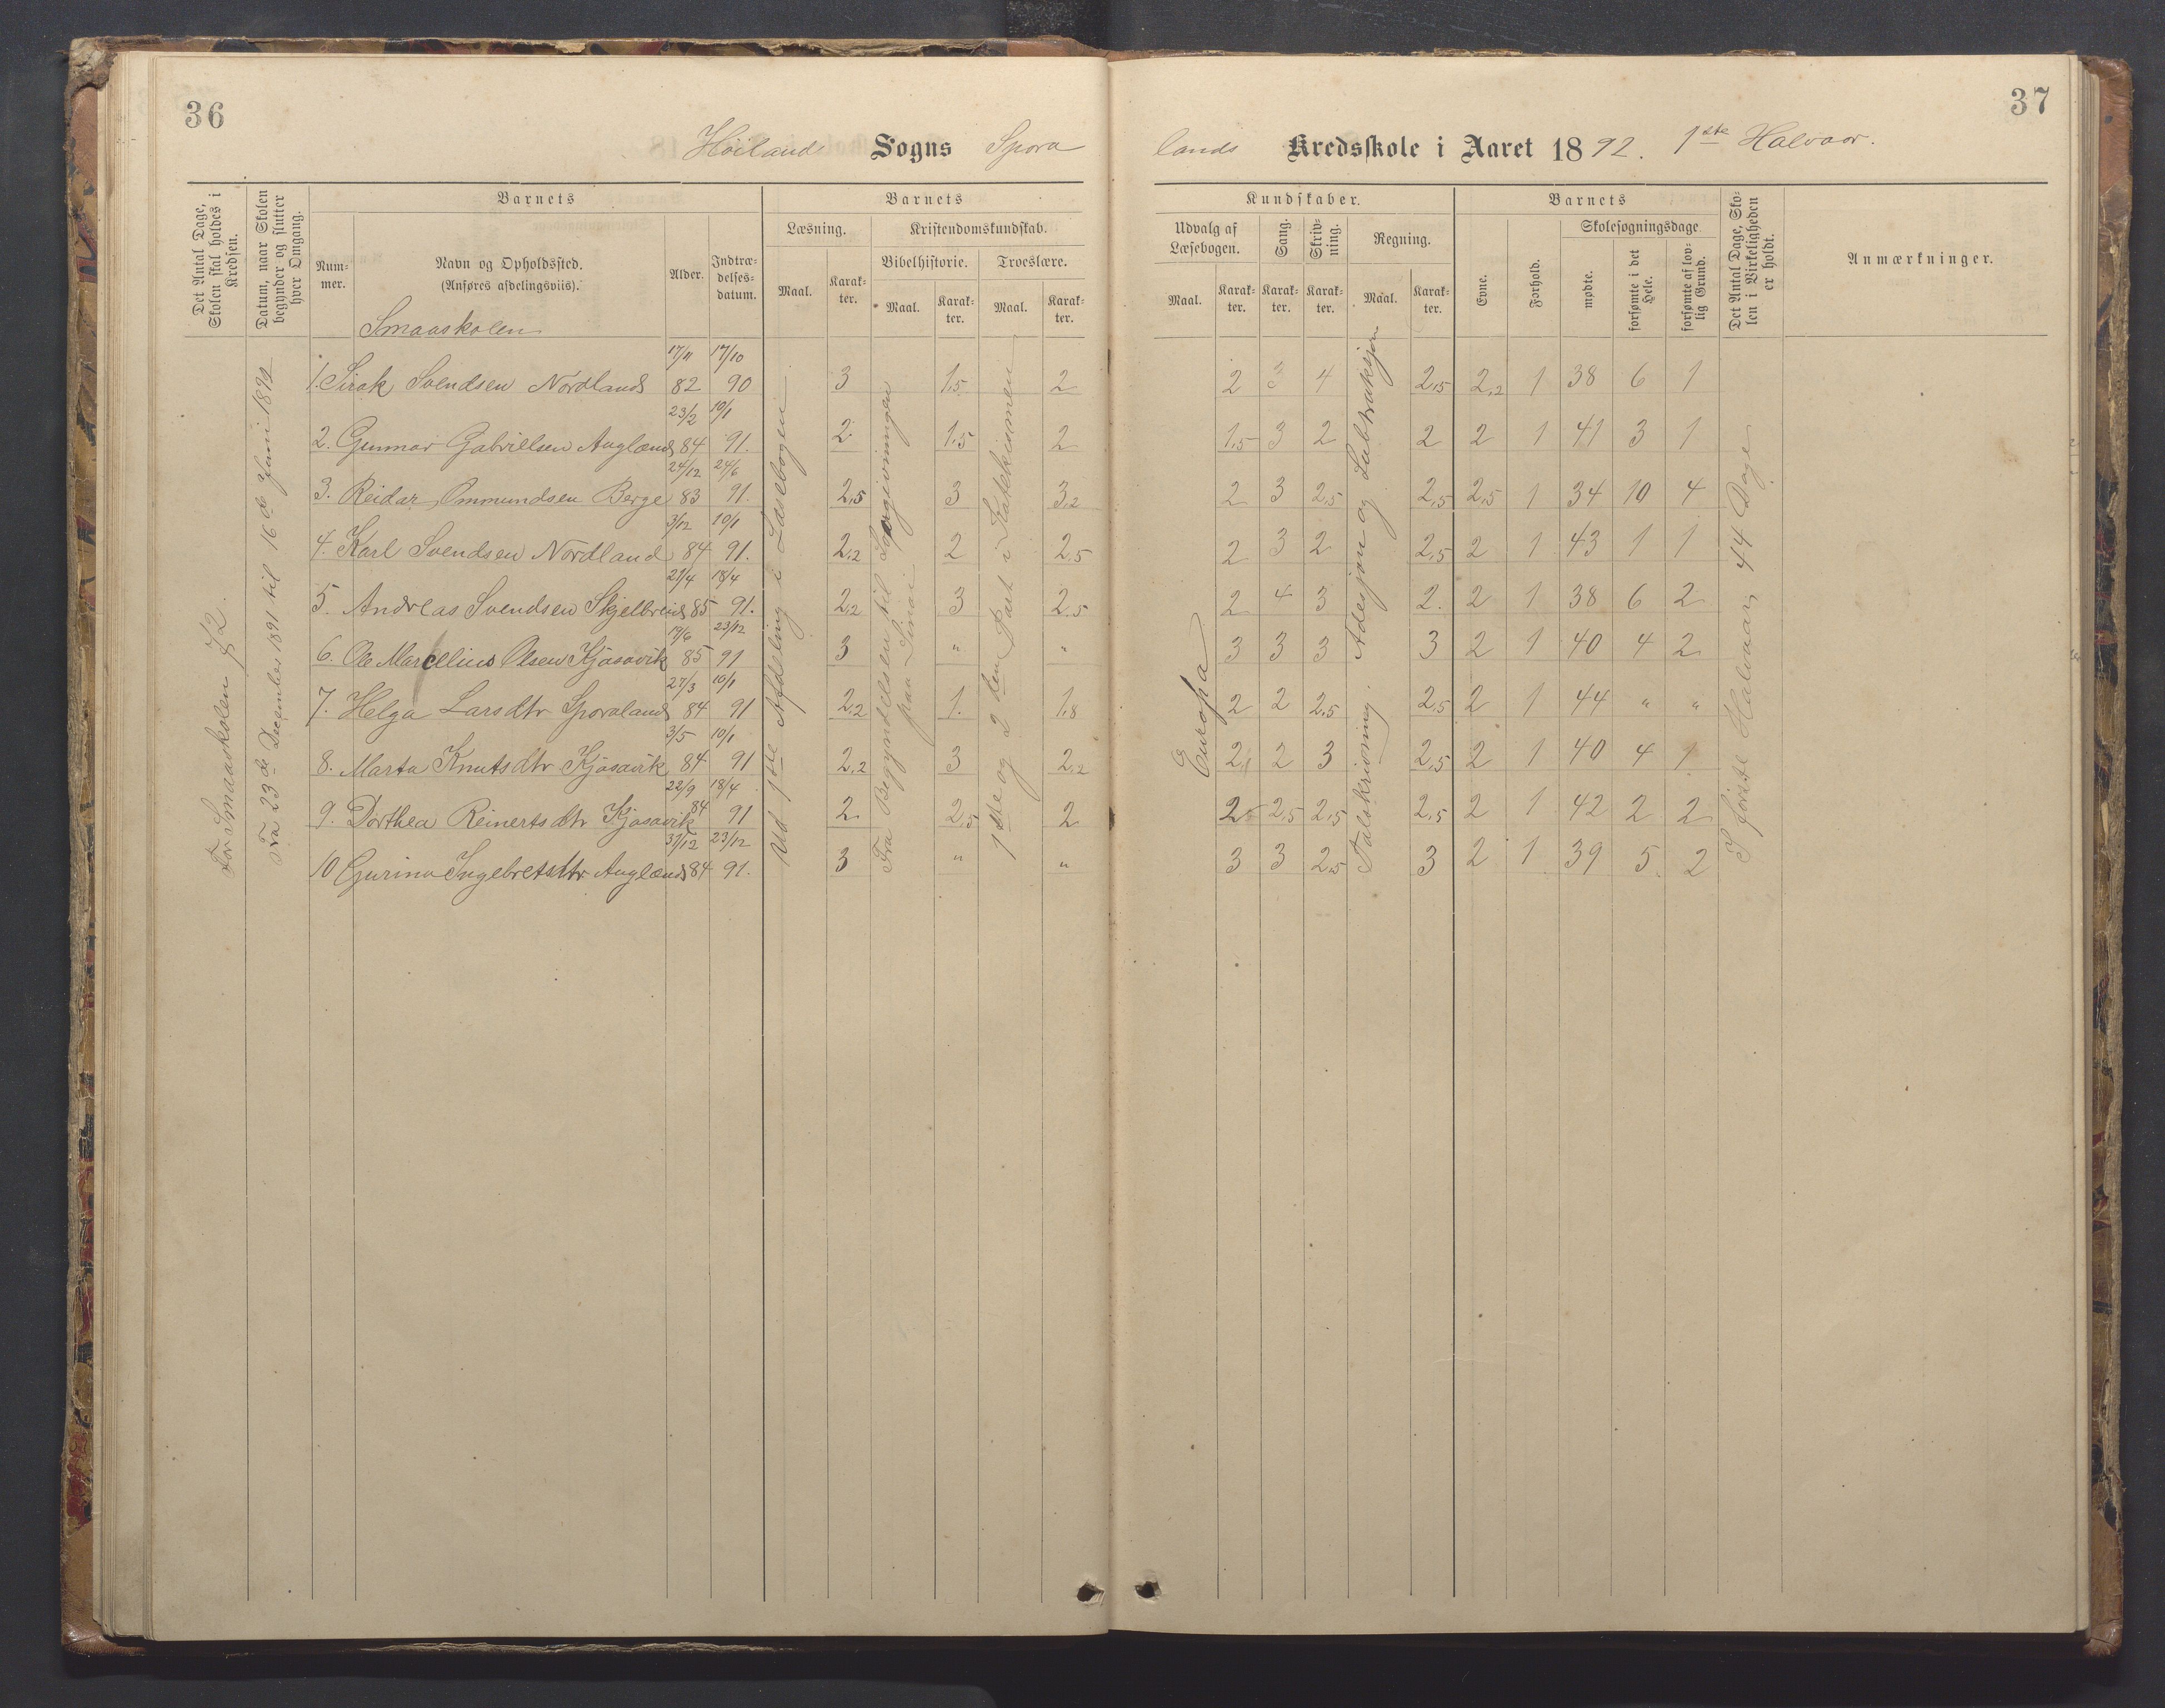 36
Höiland Sogns Spora
Det Antal Dage, Skolen skal holdes i Kredsen.
Datum, naar Skolen begynder og slutter hver Omgang.
Barnets
Barnets
Num-mer.
Navn og Opholdssted.
(Anføres afdelingsviis).
Alder.
Indtræ-delses-datum.
Læsning.
Kristendomskundskab.
Bibelhistorie.
Troeslære.
Maal.
Karak-ter.
Maal.
Karak-ter.
Maal.
Karak-ter.
Smaaskolen
For Smaaskolen 72.
Fra 23de December 1891 til 16de Juni 1892
Ud 1ste Afdeling i Læsebogen
Fra Begyndelsen til Lovgivningen paa Sinai
1ste og 2den Part i Katekismen
17/11 17/10
1. Sirak Svendsen Nordland 82 90 3 1,5 2
23/2 10/1
2. Gunnar Gabrielsen Auglænd 84 91. 2 1,5 2
24/12 24/6
3. Reidar Ommundsen Berge 83 91. 2,5 3 3,2
3/12 10/1
4. Karl Svendsen Nordland 84 91. 2,2 2 2,5
21/4 18/4
5. Andreas Svendsen Skjelbreid 85 91. 2,2 3 2,5
19/6 23/12
6. Ole Marcelius Olsen Kjosavik 85 91 3 " "
27/3 10/1
7. Helga Larsdtr Sporaland 84 91 2,2 1. 1,8
3/5 10/1
8. Marta Knutsdtr Kjosavik 84 91 2,2 3 2,2
22/9 18/4
9. Dorthea Reinertsdtr Kjosavik 84 91 2 2,5 2
31/12 23/12
10 Gurina Ingebretsdtr Auglænd 84 91. 3 " "
37
lands Kredsskole i Aaret 1892. 1ste Halvaar.
Kundskaber.
Barnets
Udvalg af Læsebogen.
Sang.
Skriv-ning.
Regning.
Evne.
Forhold.
Skolesøgningsdage
mødte.
forsømte i det Hele.
forsømte af lov-lig Grund.
Det Antal Dage, Sko-len i Virkeligheden er holdt.
Anmærkninger.
Maal.
Karak-ter.
Karak-ter.
Karak-ter.
Maal.
Karak-ter.
Europa
Talskrivning. Adesjon og Subtraksjon
I første Halvaar 44 Dage
2 3 4 2,5 2,2 1 38 6 1
1,5 3 2 2 2 1 41 3 1
2 3 2,5 2,5 2,5 1 34 10 4
2 3 2 2,5 2 1 43 1 1
2 4 3 2. 2 1 38 6 2
3 3 3 3 2 1 40 4 2
2 2 2,5 2,5 2 1 44 " "
2 2 3 2,5 2 1 40 4 1
2 2,5 2,5 2,5 2 1 42 2 2
3 3 2,5 3 2 1 39 5 2